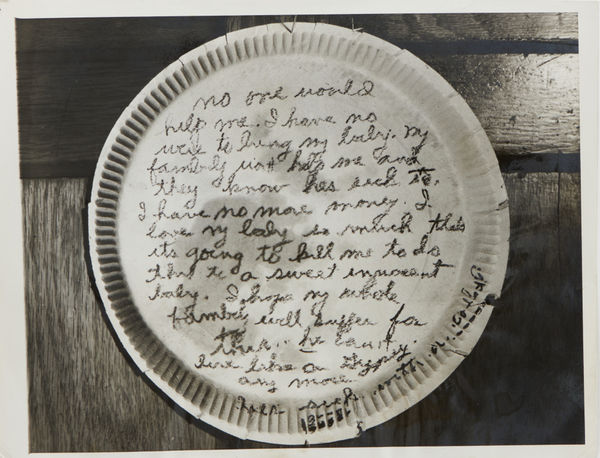 no one would
help me. I have no
were to bring my baby. my
fambly wont help me and
they know hes sick to.
I have no more money. I
love my baby so much thats
its going to kill me to do
this to a sweet innocent
baby. I hope my whole
fambly will suffer for
he cant
live like a Gypsy.
any more.
sick with